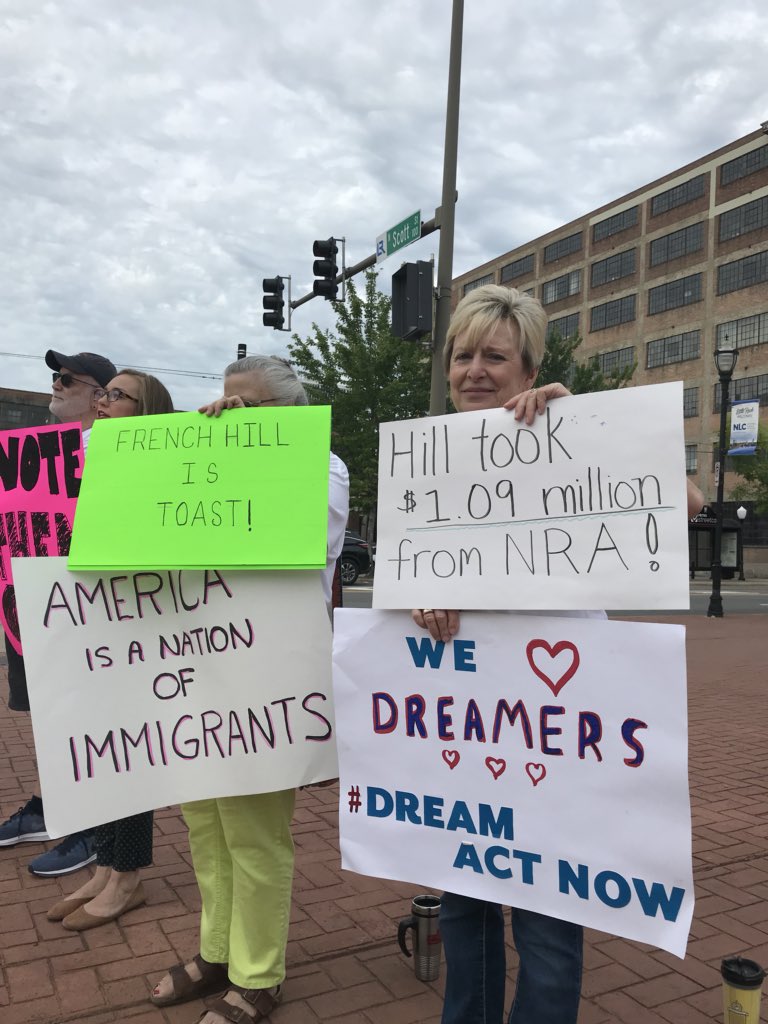 N Scott St
100
VOTE
THE
FRENCH HILL
IS
TOAST!
AMERICA
IS A NATION
OF
IMMIGRANTS
Hill took
$1.09 million
from NRA!
WE
DREAMERS
#DREAM
ACT NOW
NLC